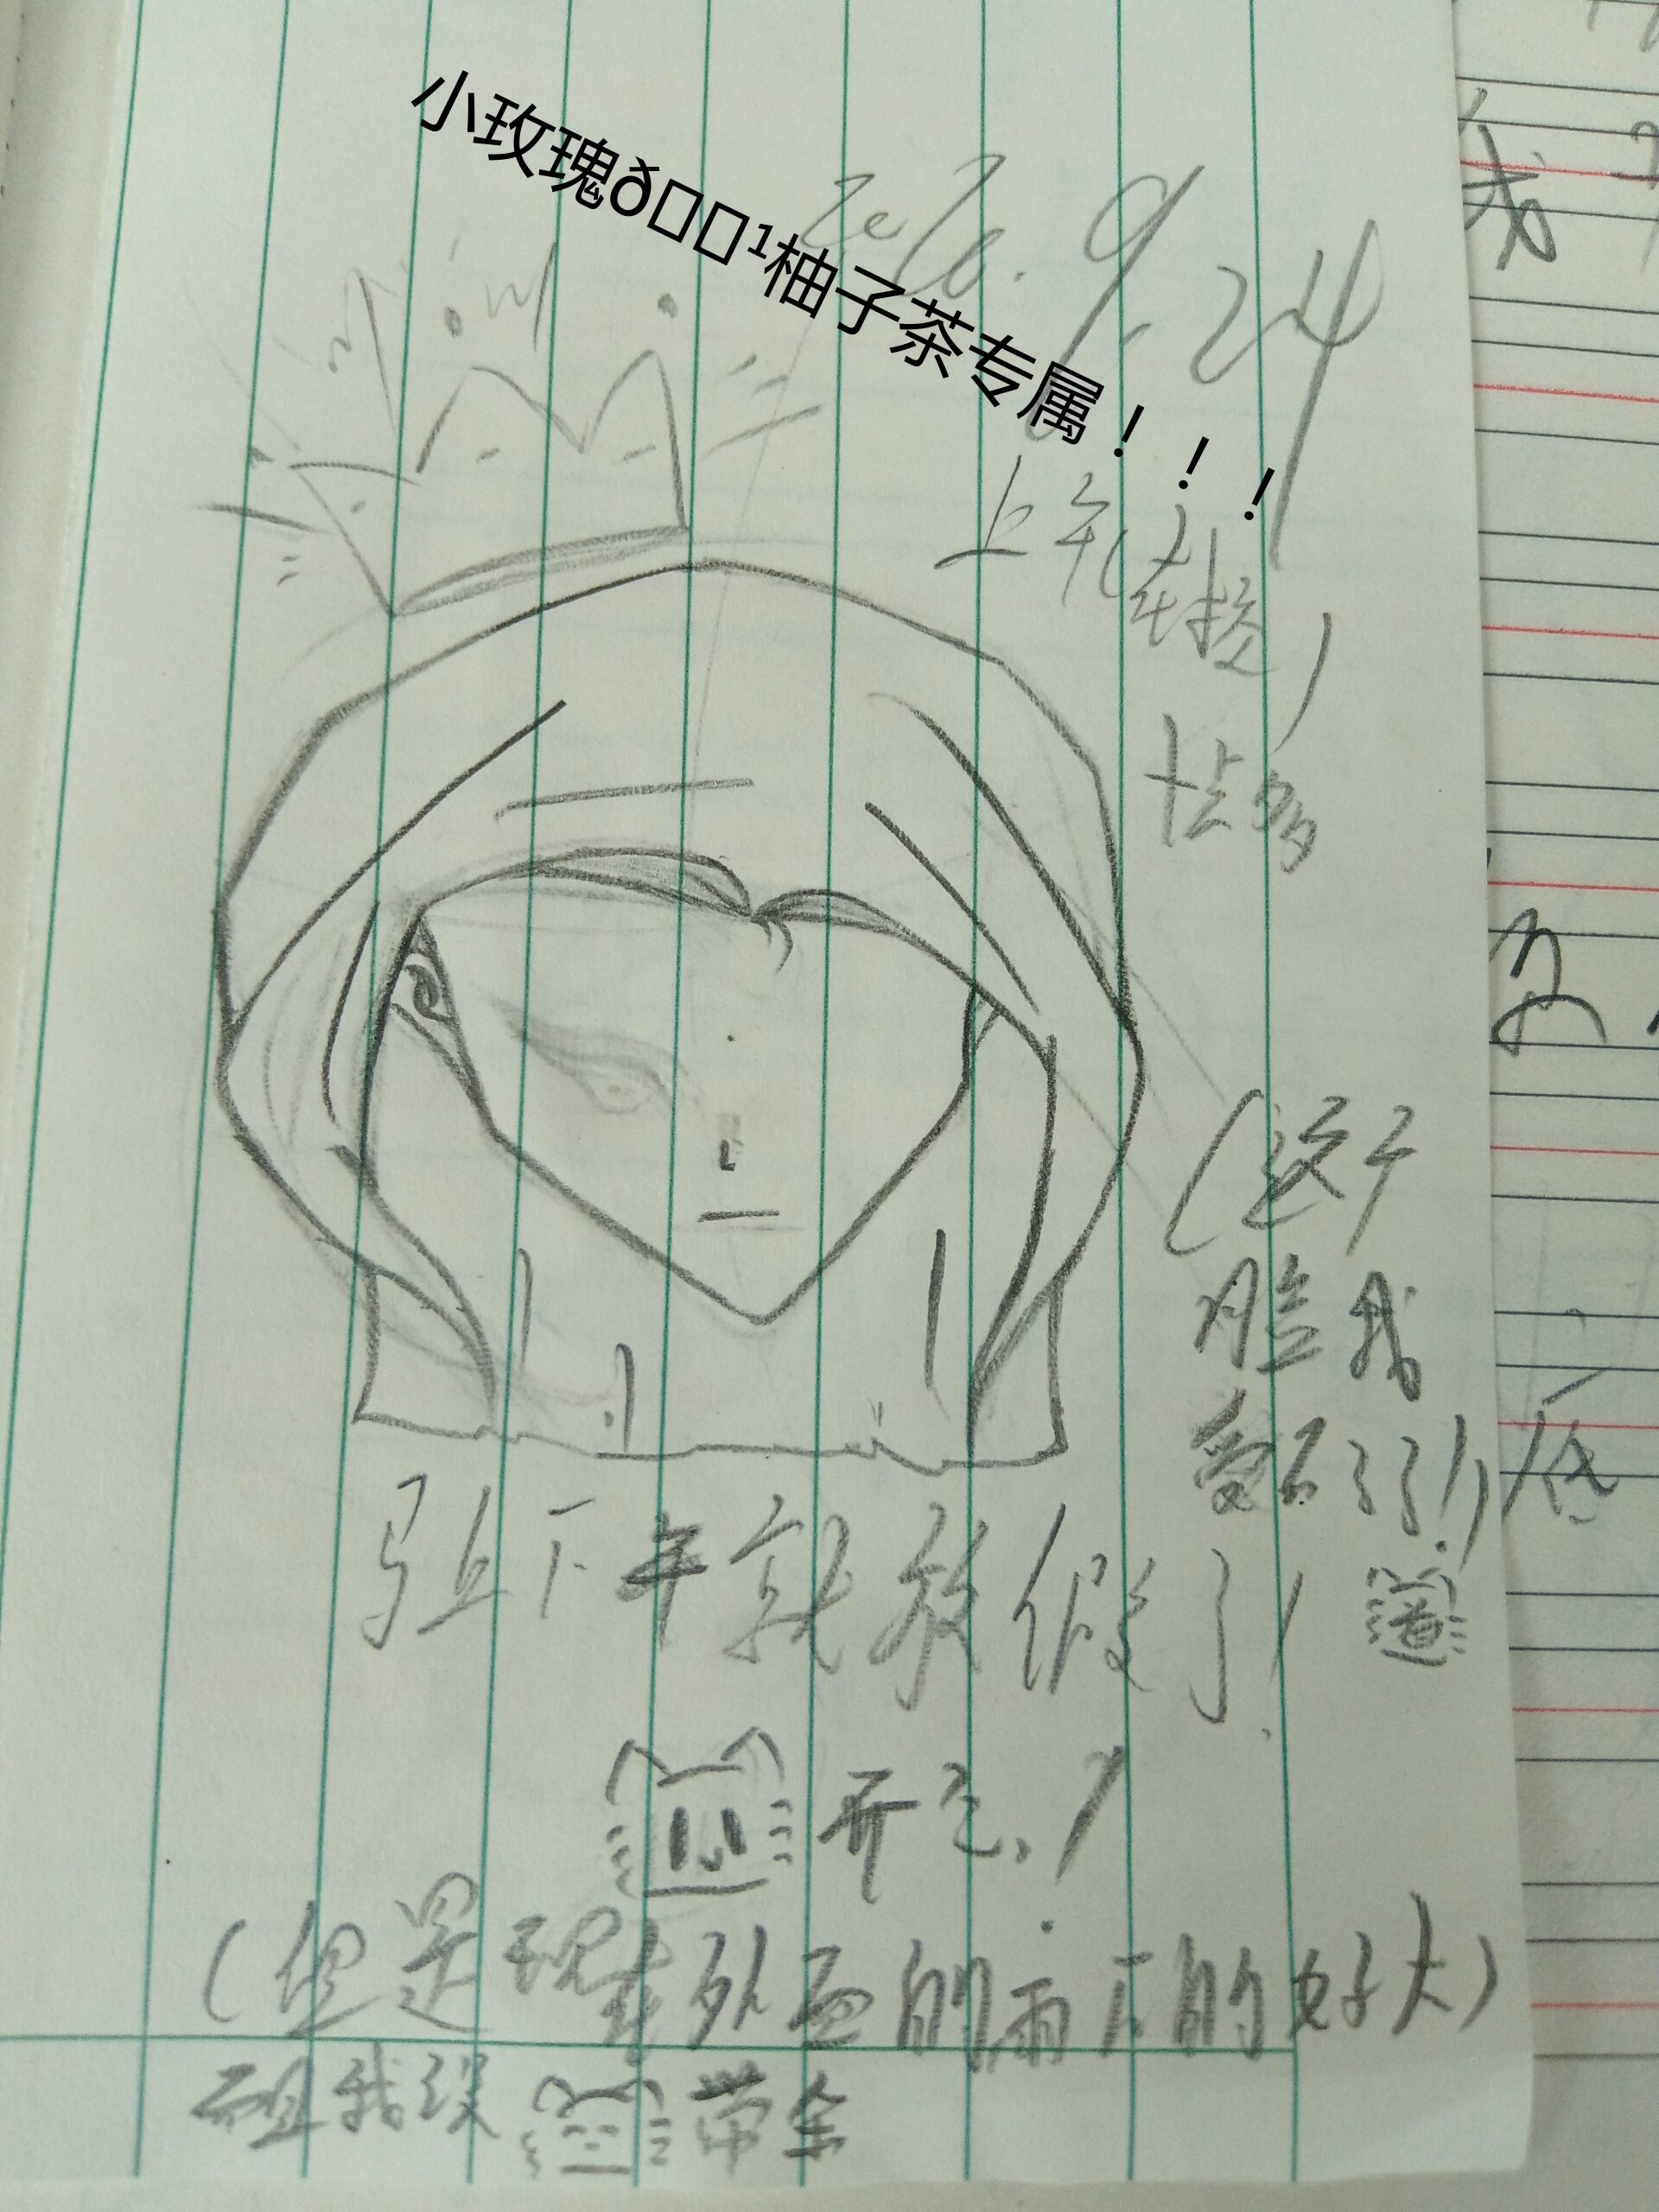 小玫瑰ð¹柚子茶专属！！！
9.24
上午(在校)
十点多
(这个
脸我
受不了了!)
马上下午就放假了!
开心!
(但是现在外面的雨下的好大)
而且我没带伞
我